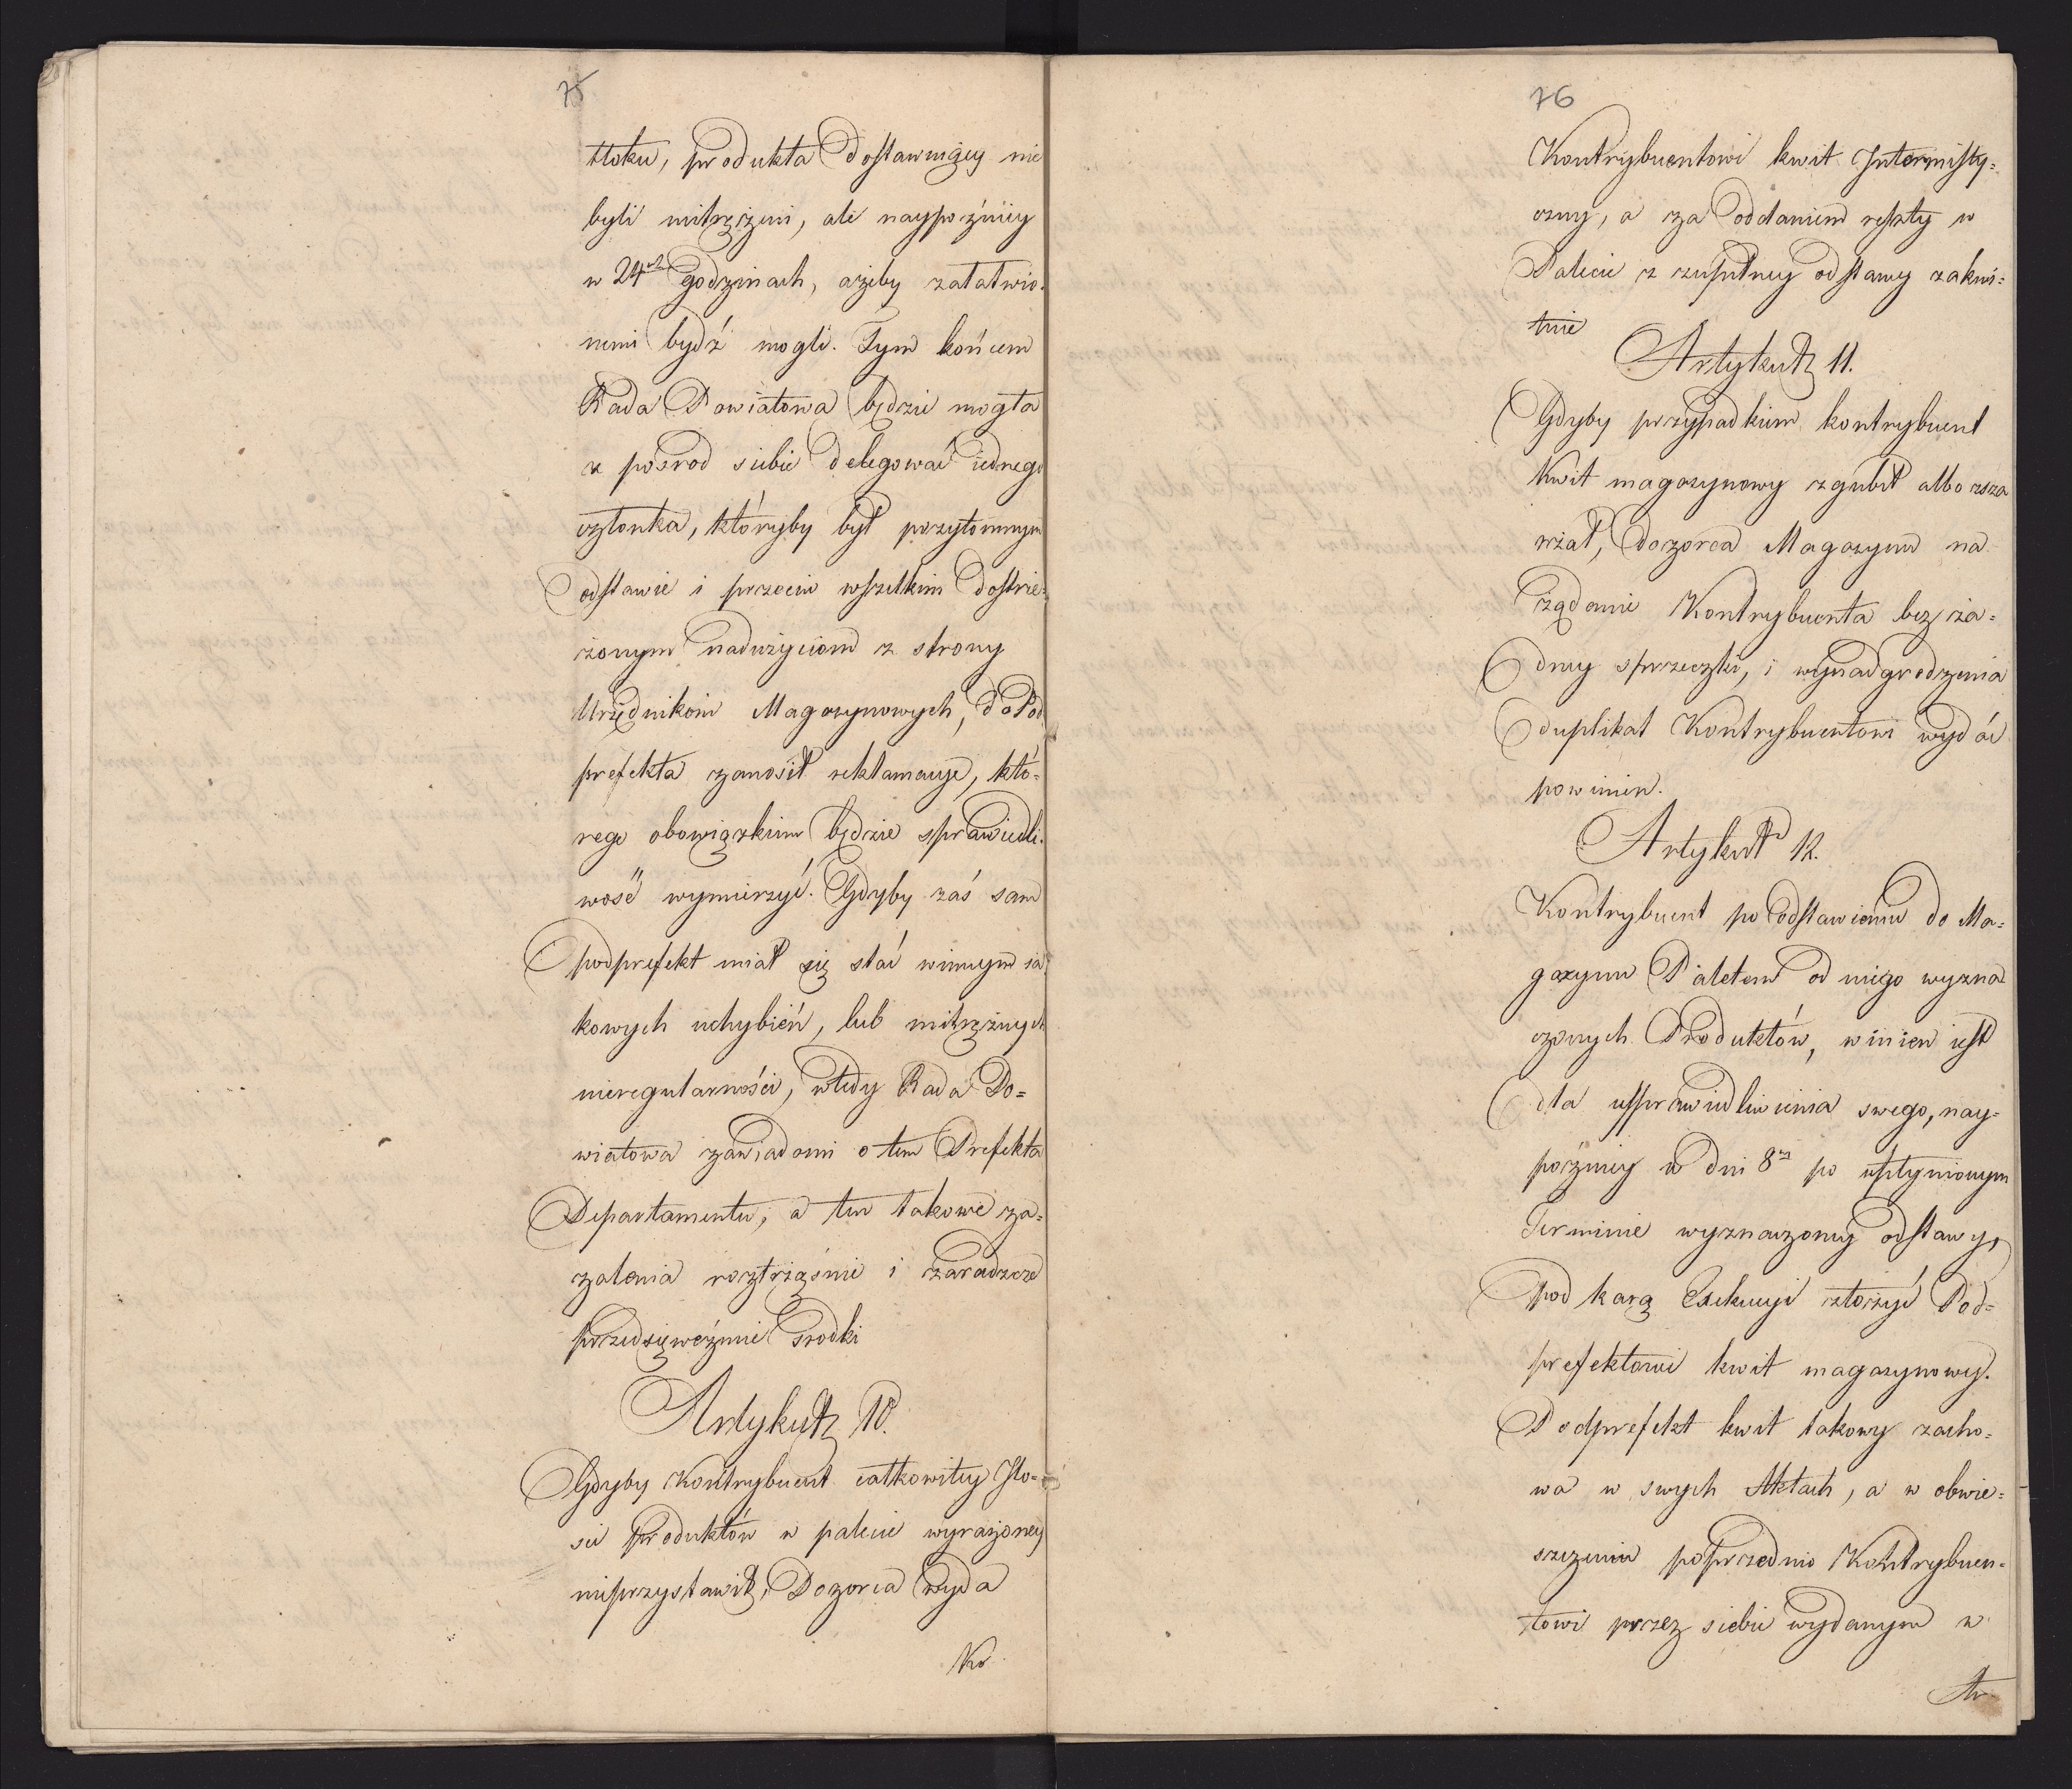 75
tłoku, produkta dostawuiący nie
byli mitrężeni, ale naypoźniey
w 24ch godzinach, ażeby załatwio-
nemi bydź mogli. Tym końcem
Rada Powiatowa będzie mogła
z pośrod siebie delegować iednego
członka, któryby był przytomnym
odstawie i przeciw wszelkim dostrze-
żonym nadużyciom z strony
Urzędników Magazynowych, do Pod
prefekta zanosił reklamacye, któ-
rego obowiązkiem będzie sprawiedli-
wość wymierzyć. Gdyby zaś sam
podprefekt miał się stać winnym ia
kowych uchybień, lub mitrężnych
nieregularności, wtedy Rada Po=
wiatowa zawiadomi o tem Prefekta
Departamentu, a ten takowe za=
żalenia roztrząśnie i zaradzcze
przedsięweźmie srodki
Artykuł 10.
Gdyby Kontrybuent całkowitey Ilo-
ści produktów w palecie wyrażoney
nieprzystawił, Dozorca wyda
Ko
76
Kontrybuentowi kwit Intermisty=
czny, a za oddaniem reszty w
Palecie z zupełney odstawy zakwi=
tuie
Artykuł 11.
Gdyby przypadkiem kontrybuent
kwit magazynowy zgubił albo zsza
rżał, Dozorca Magazynu na
żądanie Kontrybuenta bez ża=
dney sprzeczki, i wynadgrodzenia
duplikat Kontrybuentowi wydać
powinien.
Artykuł 12.
Kontrybuent po odstawieniu do Ma=
gazynu Paletem od niego wyzna
czonych Produktów, winien iest
dla usprawiedliwienia swego, nay=
pozniey w dni 8m po upłynionym
Terminie wyznaczoney odstawy,
pod karą Exekucyi złożyć Pod=
prefektowi kwit magazynowy.
Podprefekt kwit takowy zacho=
wa w swych Aktach, a w obwie=
szczeniu poprzednio Kontrybuen=
towi przez siebie wydanym w